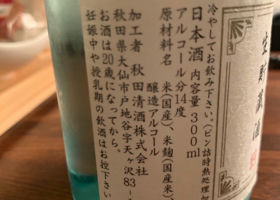 生貯蔵酒
冷やしてお飲み下さい。(ビン詰時熱処理
日本酒 内容量300ml
アルコール分14度
原材料名 米(国産)、米麹(国産米)、
醸造アルコール
加工者 秋田清酒株式会社
秋田県大仙市戸地谷字天ヶ沢83-
お酒は20歳になってから。
妊娠中や授乳期の飲酒はお控下さい